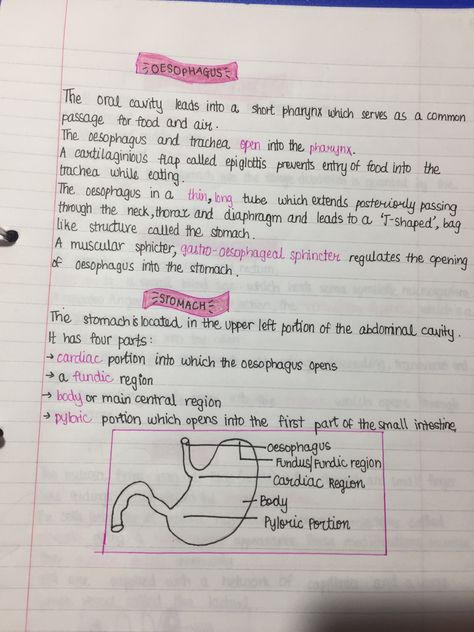 OESOPHAGUS
The oral cavity leads into a short pharynx which serves as a common
passage for food and air.
The oesophagus and trachea open into the pharynx.
A cartilaginious flap called epiglottis prevents entry of food into the
trachea while eating.
The oesophagus in a thin, long tube which extends posteriorly passing
through the neck, thorax and diaphragm and leads to a 'J-shaped', bag
like structure called the stomach.
A muscular sphicter, gastro-oesophageal sphincter regulates the opening
of oesophagus into the stomach.
STOMACH
The stomach is located in the upper left portion of the abdominal cavity.
It has four parts:
→ cardiac portion into which the oesophagus opens
→ a fundic region
→ body or main central region
→ pyloric portion which opens into the first part of the small intestine.
Oesophagus
Fundus/Fundic region
Cardiac Region
Body
Pyloric Portion